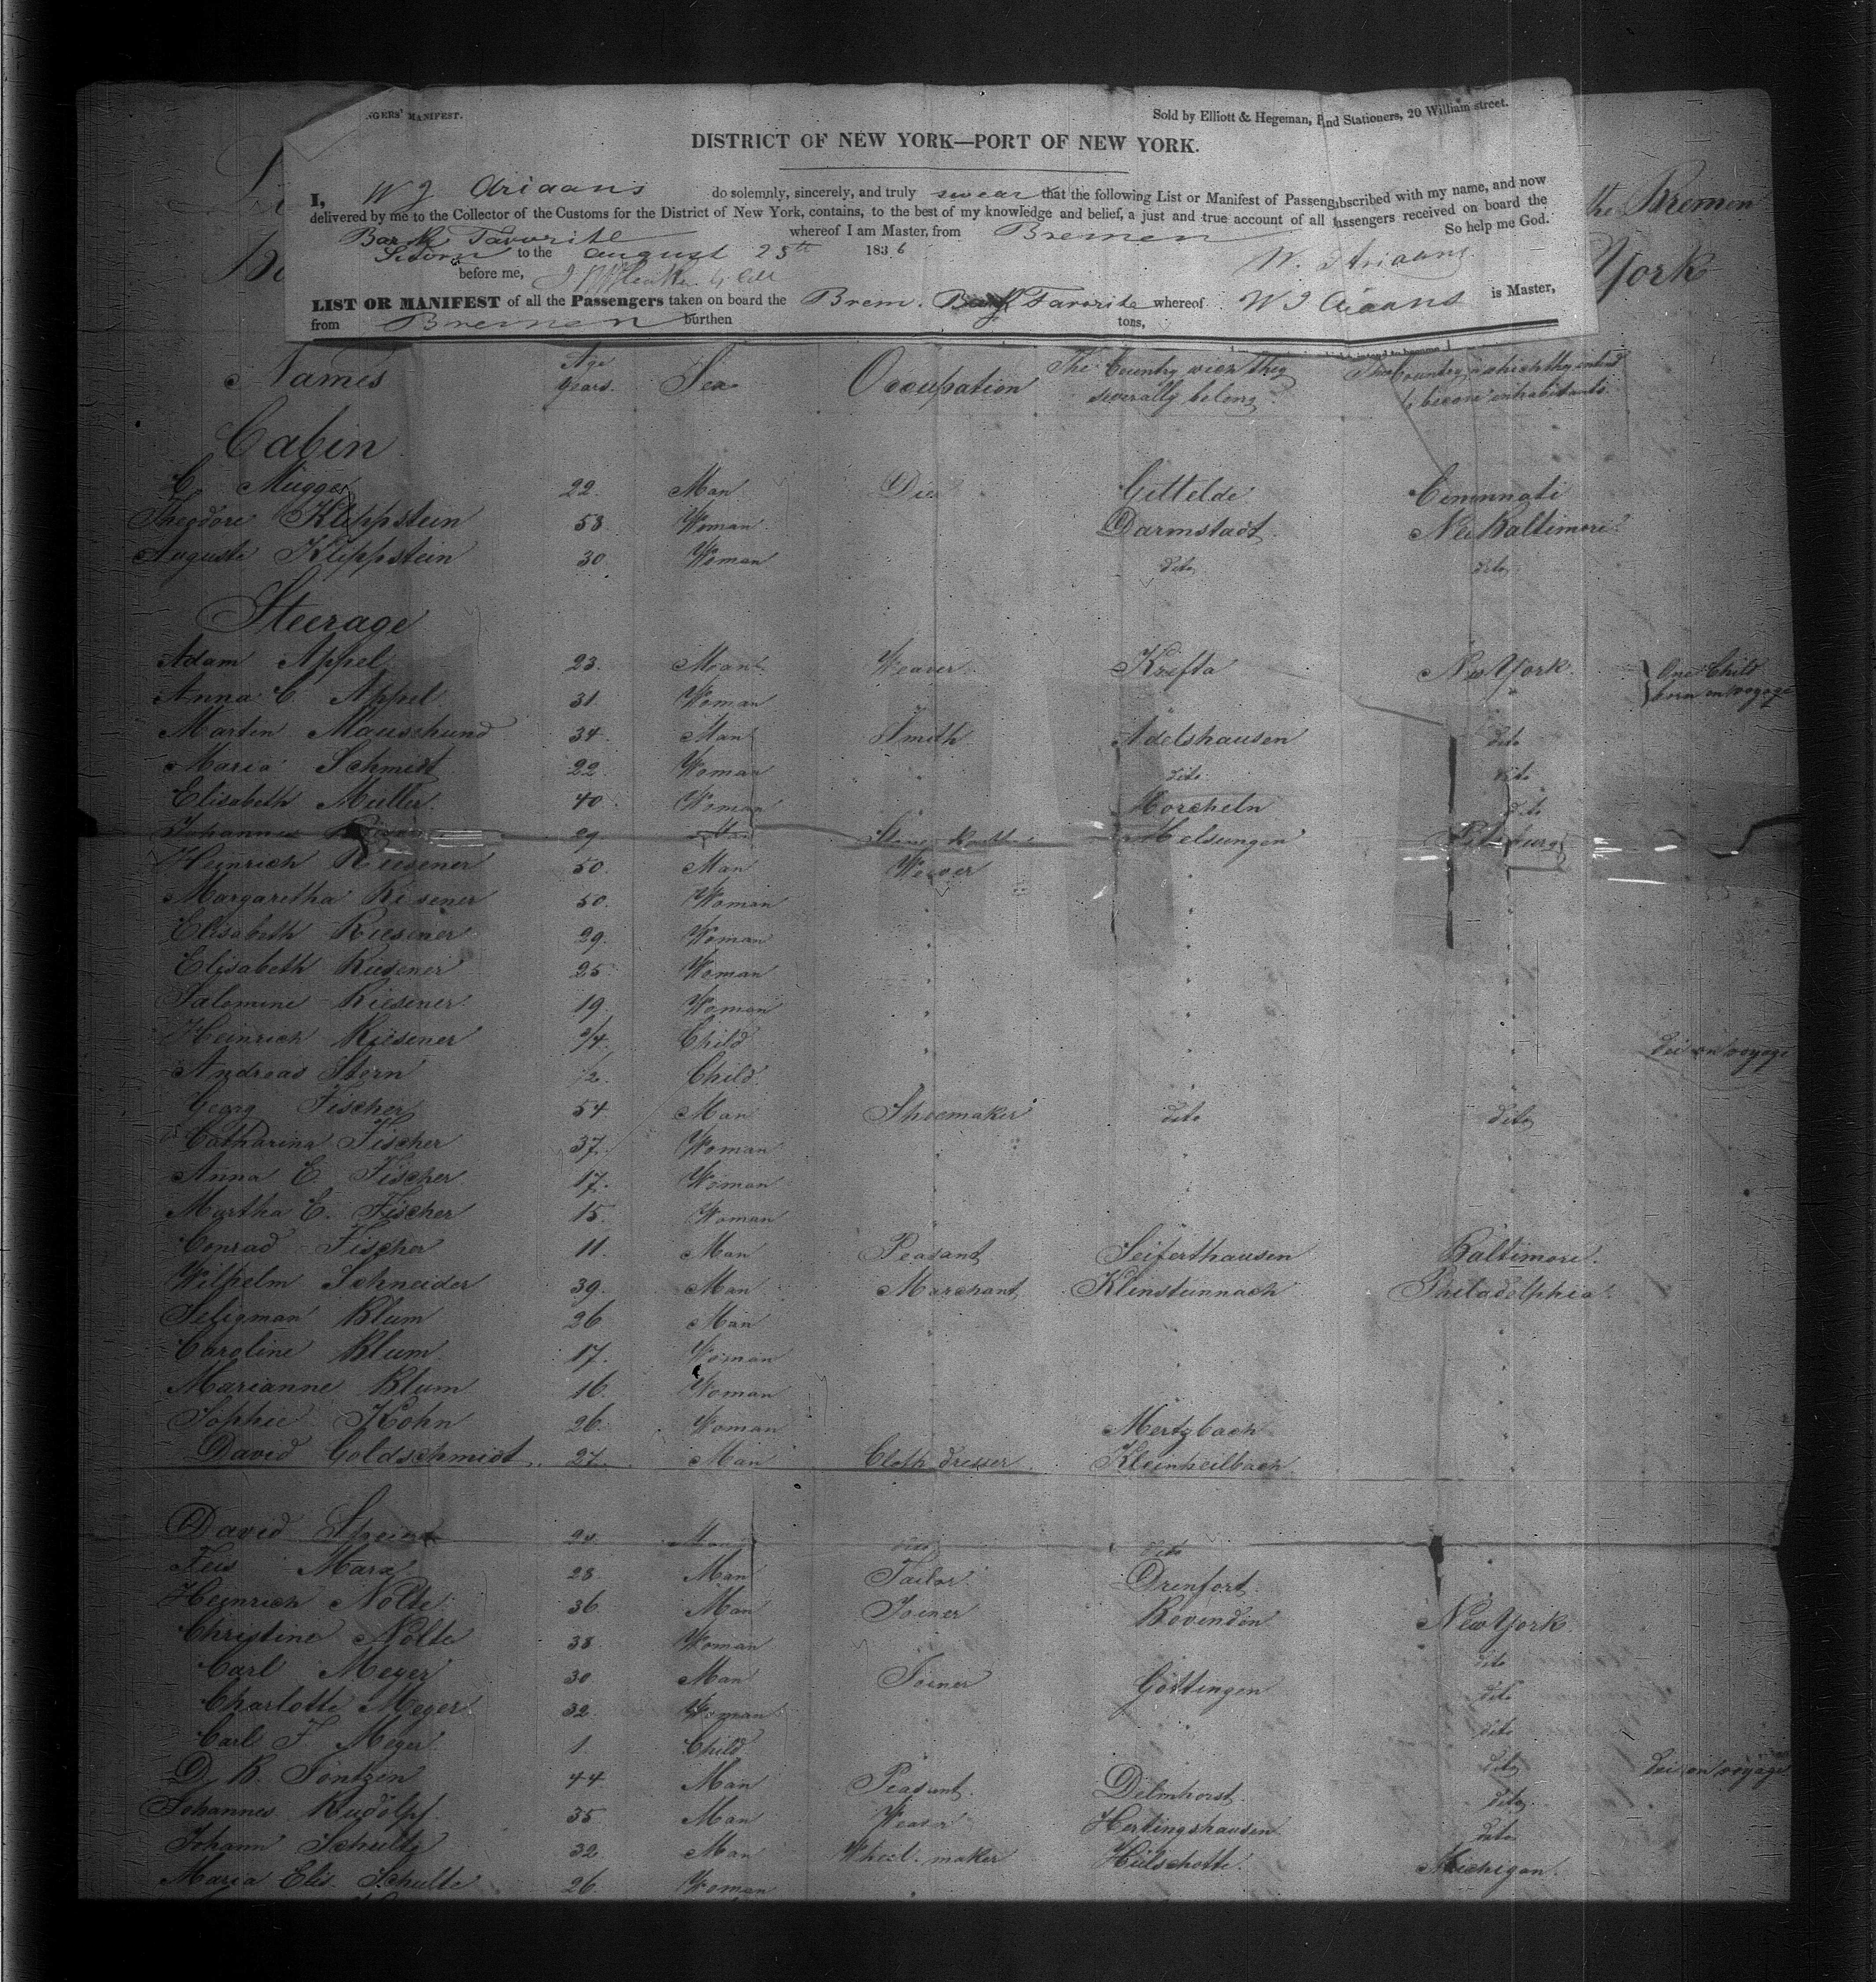 GERS' MANIFEST.
Sold by Elliott & Hegeman, and Stationers, 20 William street.
DISTRICT OF NEW YORK—PORT OF NEW YORK.
I, W J Ariaans do solemnly, sincerely, and truly swear that the following List or Manifest of Passeng bscribed with my name, and now
delivered by me to the Collector of the Customs for the District of New York, contains, to the best of my knowledge and belief, a just and true account of all assengers received on board the
the Bremen
Bark Favorite whereof I am Master, from Bremen So help me God.
to the August 25th 1836
York
before me,
LIST OR MANIFEST of all the Passengers taken on board the Brem. Bark Favorite whereof W J Ariaans is Master,
from Bremen burthen tons,
Names Age years. Sex Occupation The Country wich they severally belong The Country in which they intend to become inhabitants
Cabin
C. Mügge 22. Man Gittelde Cincinnati
Theodore Klippstein 58 Woman Darmstadt Baltimore
Auguste Klippstein 30 Woman dito dito
Steerage
Adam Appel 23. Man Weaver New York One Child
Anna C. Appel 31 Woman born on voyage
Martin Mauschund 34 Man Smith Adelshausen dito
Maria Schmidt 22 Woman dito dito
Elisabeth Muller 40 Woman Morscheln dito
Johannes 29 Melsungen
Heinrich Riesener 50. Man Weaver "
Margaretha Riesener 50. Woman " " "
Elisabeth Riesener 29. Woman " " "
Elisabeth Riesener 25 Woman " " "
Salomine Riesener 19. Woman " " "
Heinrich Riesener Child " " " died on voyage
Andreas Stern Child
Georg Fischer 54 Man Shoemaker dito dito
Catharina Fischer 37. Woman " "
Anna E. Fischer 17. Woman " " "
Martha E. Fischer 15. Woman " "
Conrad Fischer 11. Man Peasant Seiferthausen Baltimore.
Wilhelm Schneider 39. Man Marchant Kleinsteinnach Philadelphia.
Seligman Blum 26 Man " " "
Caroline Blum 17. Woman "
Marianne Blum 16. Woman "
Sophie Kohn 26. Woman Mertzbach "
David Goldschmidt 27. Man Cloth dresser Kleinheilbach "
David dito dito
Feis Marx 28. Man Tailor Drenfort "
Heinrich Nolte 36 Man Joiner Bovenden New York
Christine Nolte 38 Woman dito
Carl Meyer 30 Man Joiner Göttingen dito
Charlotte Meyer 32. Woman " dito
Carl F. Meyer 1. Child dito died on voyage
D. B. Töntzen 44 Man Peasant Delmhorst dito
Johannes Rudolph 35 Man Weaver Hertingshausen dito
Johann Schulte 32 Man Wheel maker Hülschotte. Michigan.
Maria Elis. Schulte 26 Woman "